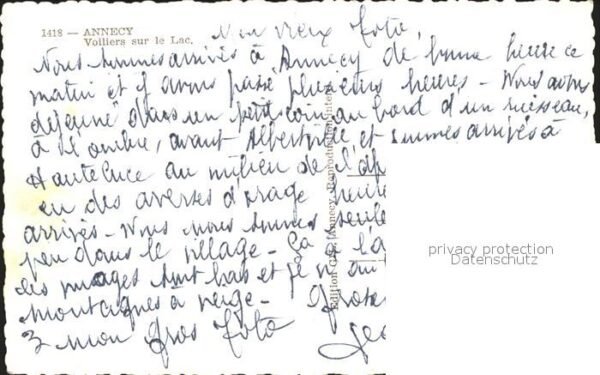 1418 — ANNECY
Voiliers sur le Lac.
Mon vieux Toto,
Nous sommes arrivés à Annecy de bonne heure ce
matin et y avons passé plusieurs heures - Nous avons
déjeuné dans un petit coin au bord d'un ruisseau,
à l'ombre, avant Albertville, et sommes arrivés à
Hauteluce au milieu de l'ap
eu des averses d'orage
arrivés - Nous nous sommes
peu dans le village - Ça
les nuages sont bas et je n'ai
montagnes à neige -
3 mon gros Toto
Edition Gil, Annecy, Reproduction Inter
privacy protection
Datenschutz